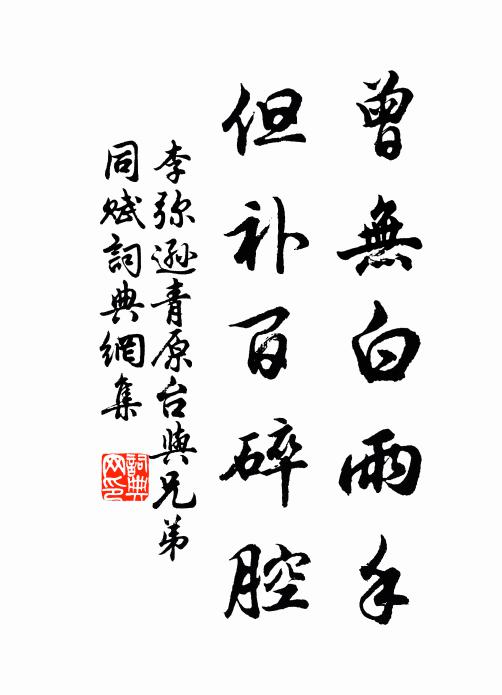 曾無白雨手
但补百碎腔
李弥遜青原台與兄弟
同赋詞典網集
詞典
网印